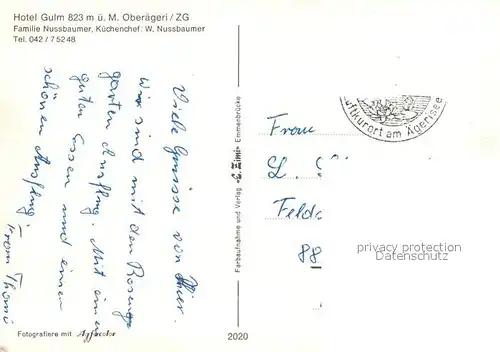 Hotel Gulm 823 m ü. M. Oberägeri / ZG
Familie Nussbaumer, Küchenchef: W. Nussbaumer
Tel. 042 / 7 52 48
Viele Grüsse von hier.
Wir sind mit den Rosen
garten Ausflug. Mit einem
guten Essen und einen
schönen Ausflug.
Frau Thomi
Farbaufnahme und Verlag «E. Zimi» Emmenbrücke
Luftkurort am Ägerisee
Frau
L.
Feld
88
privacy protection
Datenschutz
Fotografiere mit Agfacolor
2020